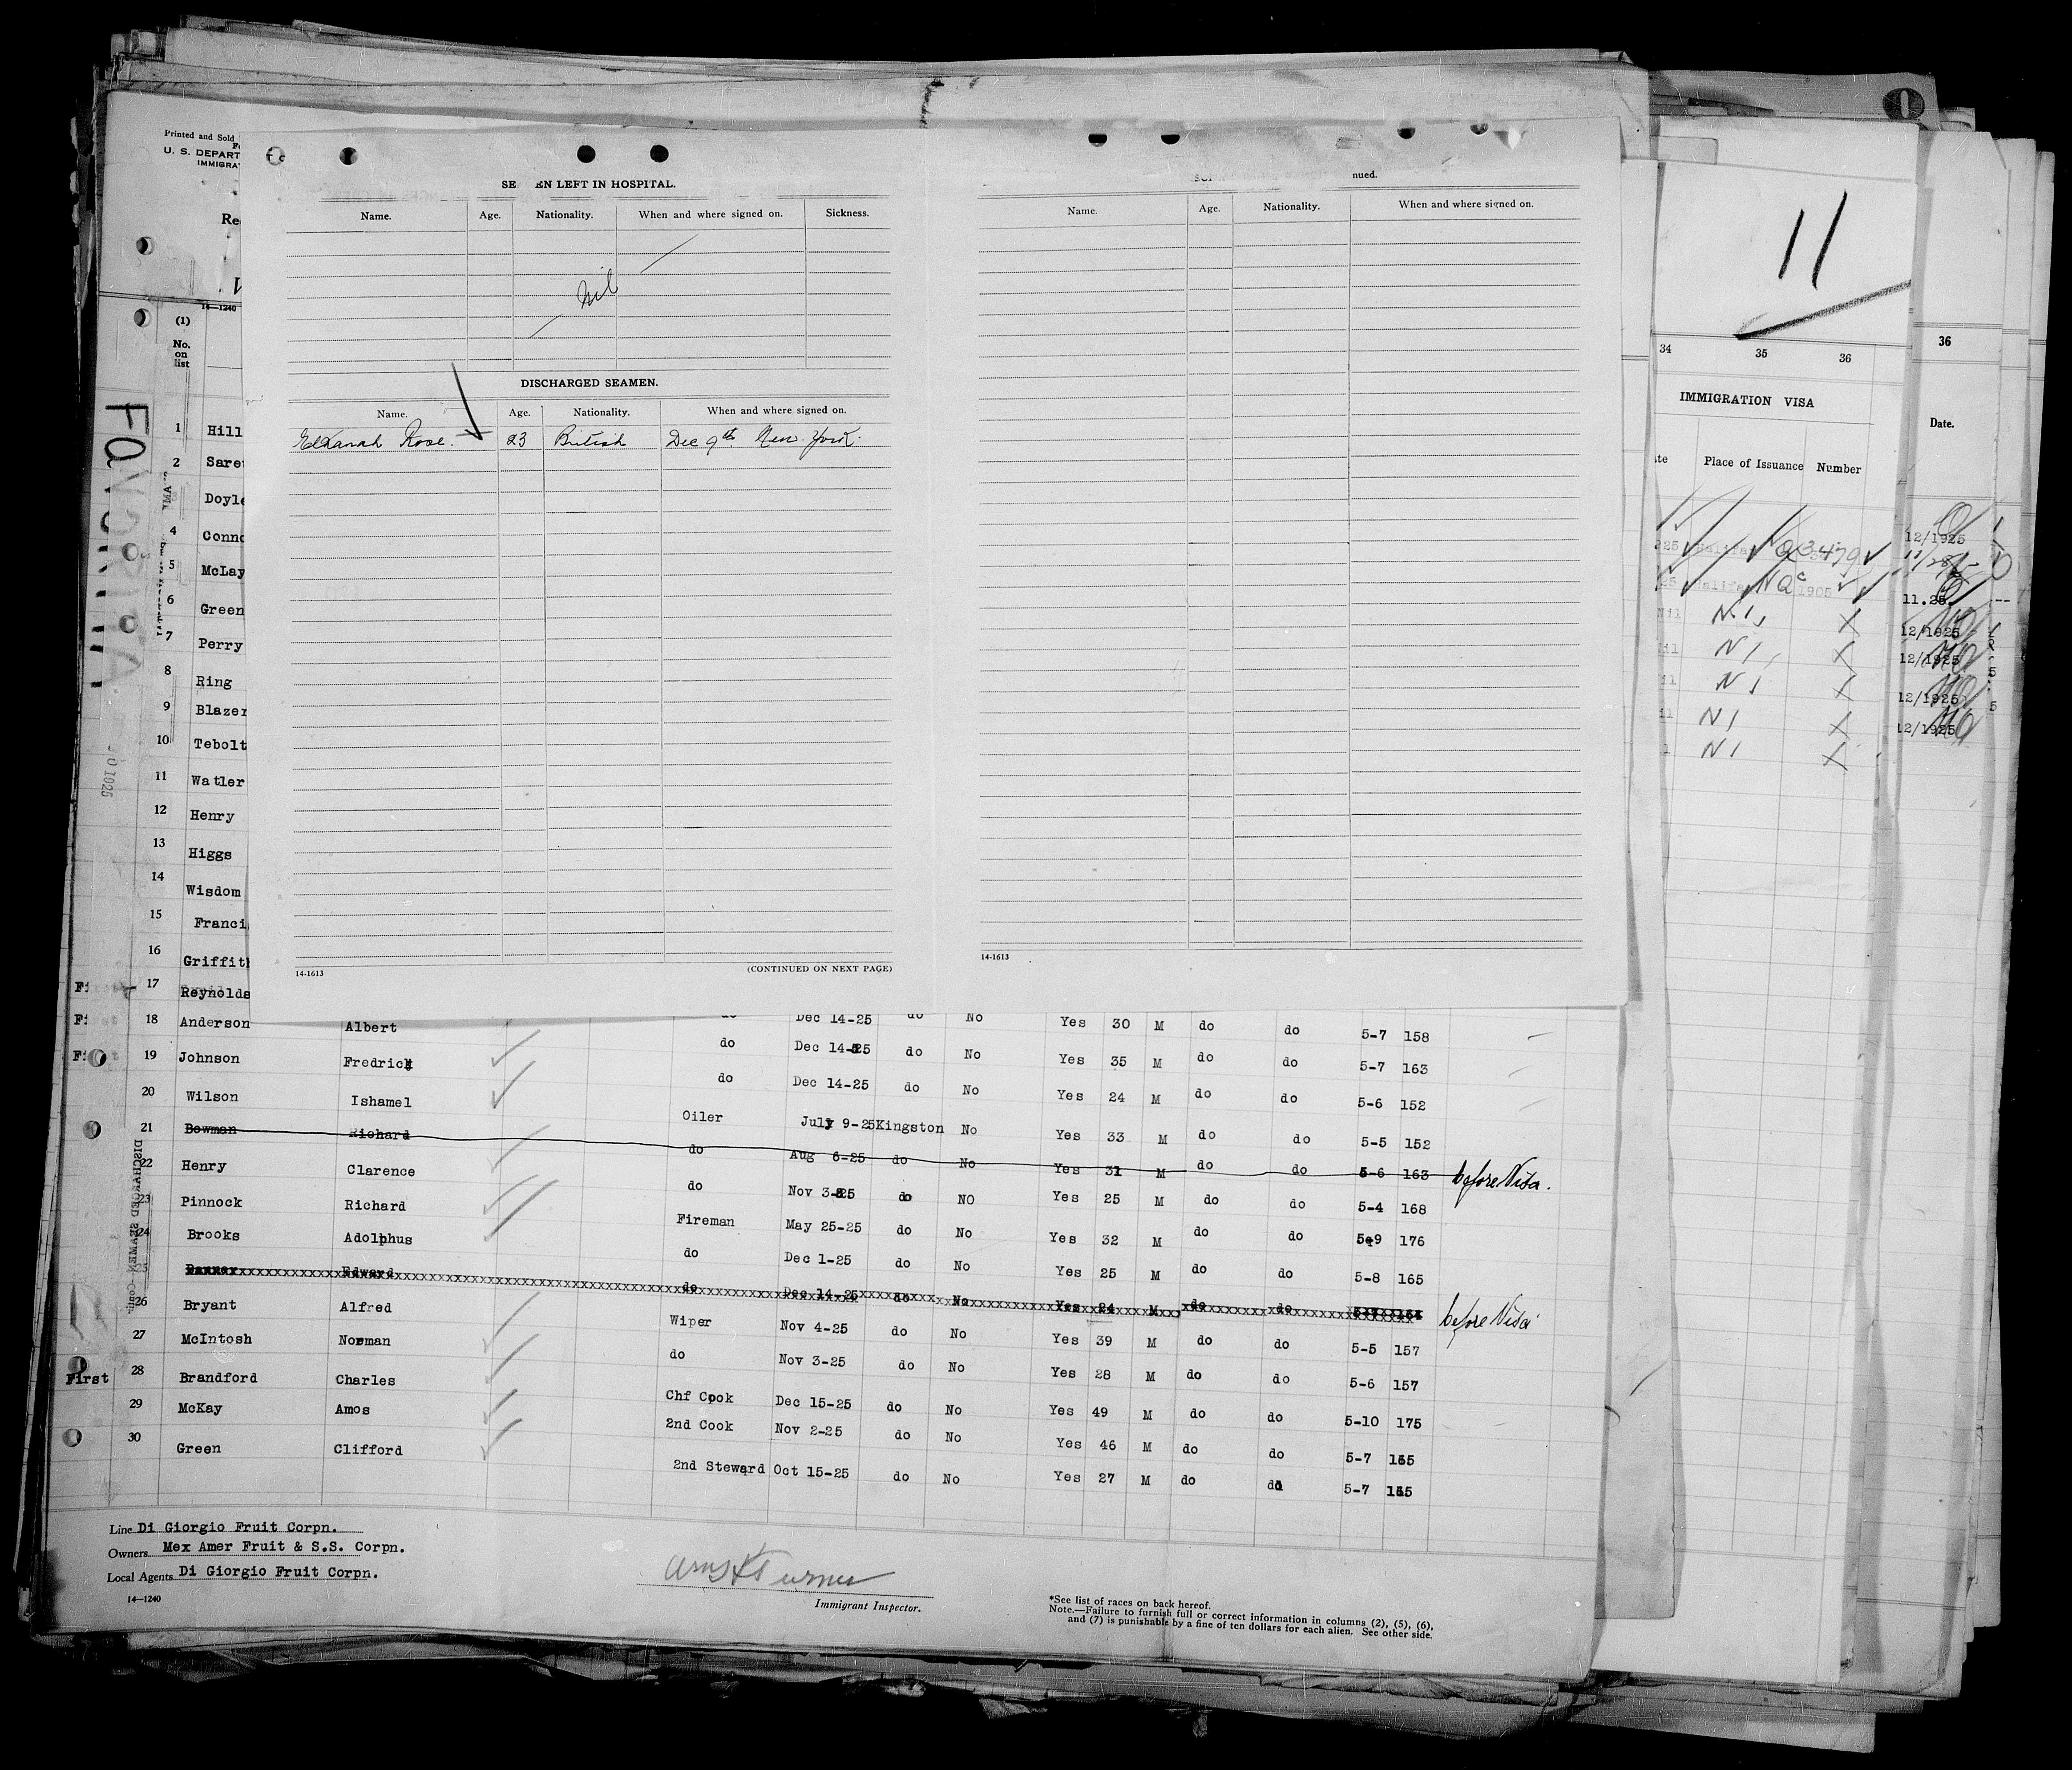 Printed and Sold
U. S. DEPART
IMMIGRA
Re
14—1240
(1)
No.
on
list
FAVORITA
SE EN LEFT IN HOSPITAL.
Name. Age. Nationality. When and where signed on. Sickness.
Nil
DISCHARGED SEAMEN.
Name. Age. Nationality. When and where signed on.
Elkanah Rose. 23 British Dec 9th New York.
14-1613
(CONTINUED ON NEXT PAGE)
nued.
Name. Age. Nationality. When and where signed on.
14-1613
11
34 35 36
IMMIGRATION VISA
Place of Issuance Number
Q3479
N1
N1
N1
N1
N1
36
Date.
12/1925
11.25
12/1925
12/1925
12/1925
12/1925
1 Hill
2 Sare
Doyle
4 Conno
5 McLay
6 Green
7 Perry
8 Ring
9 Blazer
10 Tebolt
11 Watler
12 Henry
13 Higgs
14 Wisdom
15 Franci
16 Griffith
17 Reynolds
18 Anderson Albert Dec 14-25 do No Yes 30 M do do 5-7 158
19 Johnson Fredrick do Dec 14-25 do No Yes 35 M do do 5-7 163
20 Wilson Ishamel do Dec 14-25 do No Yes 24 M do do 5-6 152
21 Bowman Richard Oiler July 9-25 Kingston No Yes 33 M do do 5-5 152
22 Henry Clarence do Aug 6-25 do No Yes 31 M do do 5-6 163 before Visa.
23 Pinnock Richard do Nov 3-25 do NO Yes 25 M do do 5-4 168
24 Brooks Adolphus Fireman May 25-25 do No Yes 32 M do do 5-9 176
25 Edward do Dec 1-25 do No Yes 25 M do do 5-8 165
26 Bryant Alfred do Dec 14-25 do No Yes 24 M do do before Visa
27 McIntosh Norman Wiper Nov 4-25 do No Yes 39 M do do 5-5 157
First 28 Brandford Charles do Nov 3-25 do No Yes 28 M do do 5-6 157
29 McKay Amos Chf Cook Dec 15-25 do No Yes 49 M do do 5-10 175
30 Green Clifford 2nd Cook Nov 2-25 do No Yes 46 M do do 5-7
2nd Steward Oct 15-25 do No Yes 27 M do do 5-7
DISCHARGED SEAMEN
Line Di Giorgio Fruit Corpn.
Owners Mex Amer Fruit & S.S. Corpn.
Local Agents Di Giorgio Fruit Corpn.
14—1240
Immigrant Inspector.
*See list of races on back hereof.
Note.—Failure to furnish full or correct information in columns (2), (5), (6),
and (7) is punishable by a fine of ten dollars for each alien. See other side.